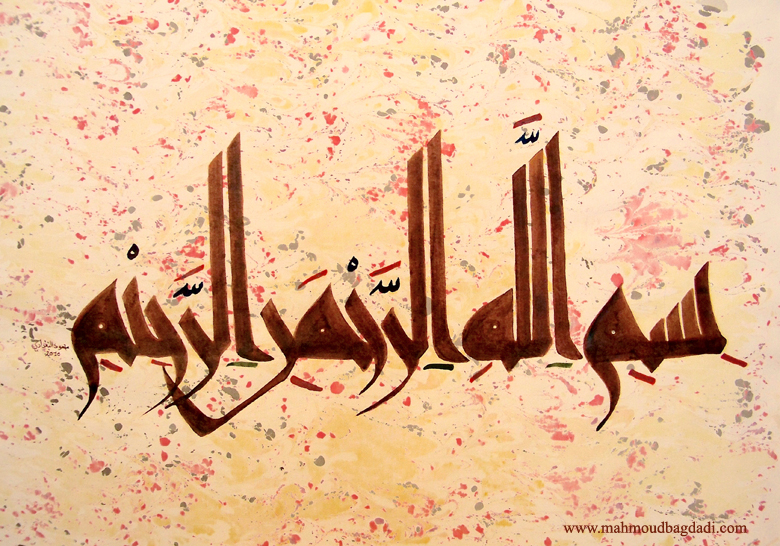 بِسْمِ اللَّهِ الرَّحْمَنِ الرَّحِيمِ
محمود البغدادي
2010
www.mahmoudbagdadi.com